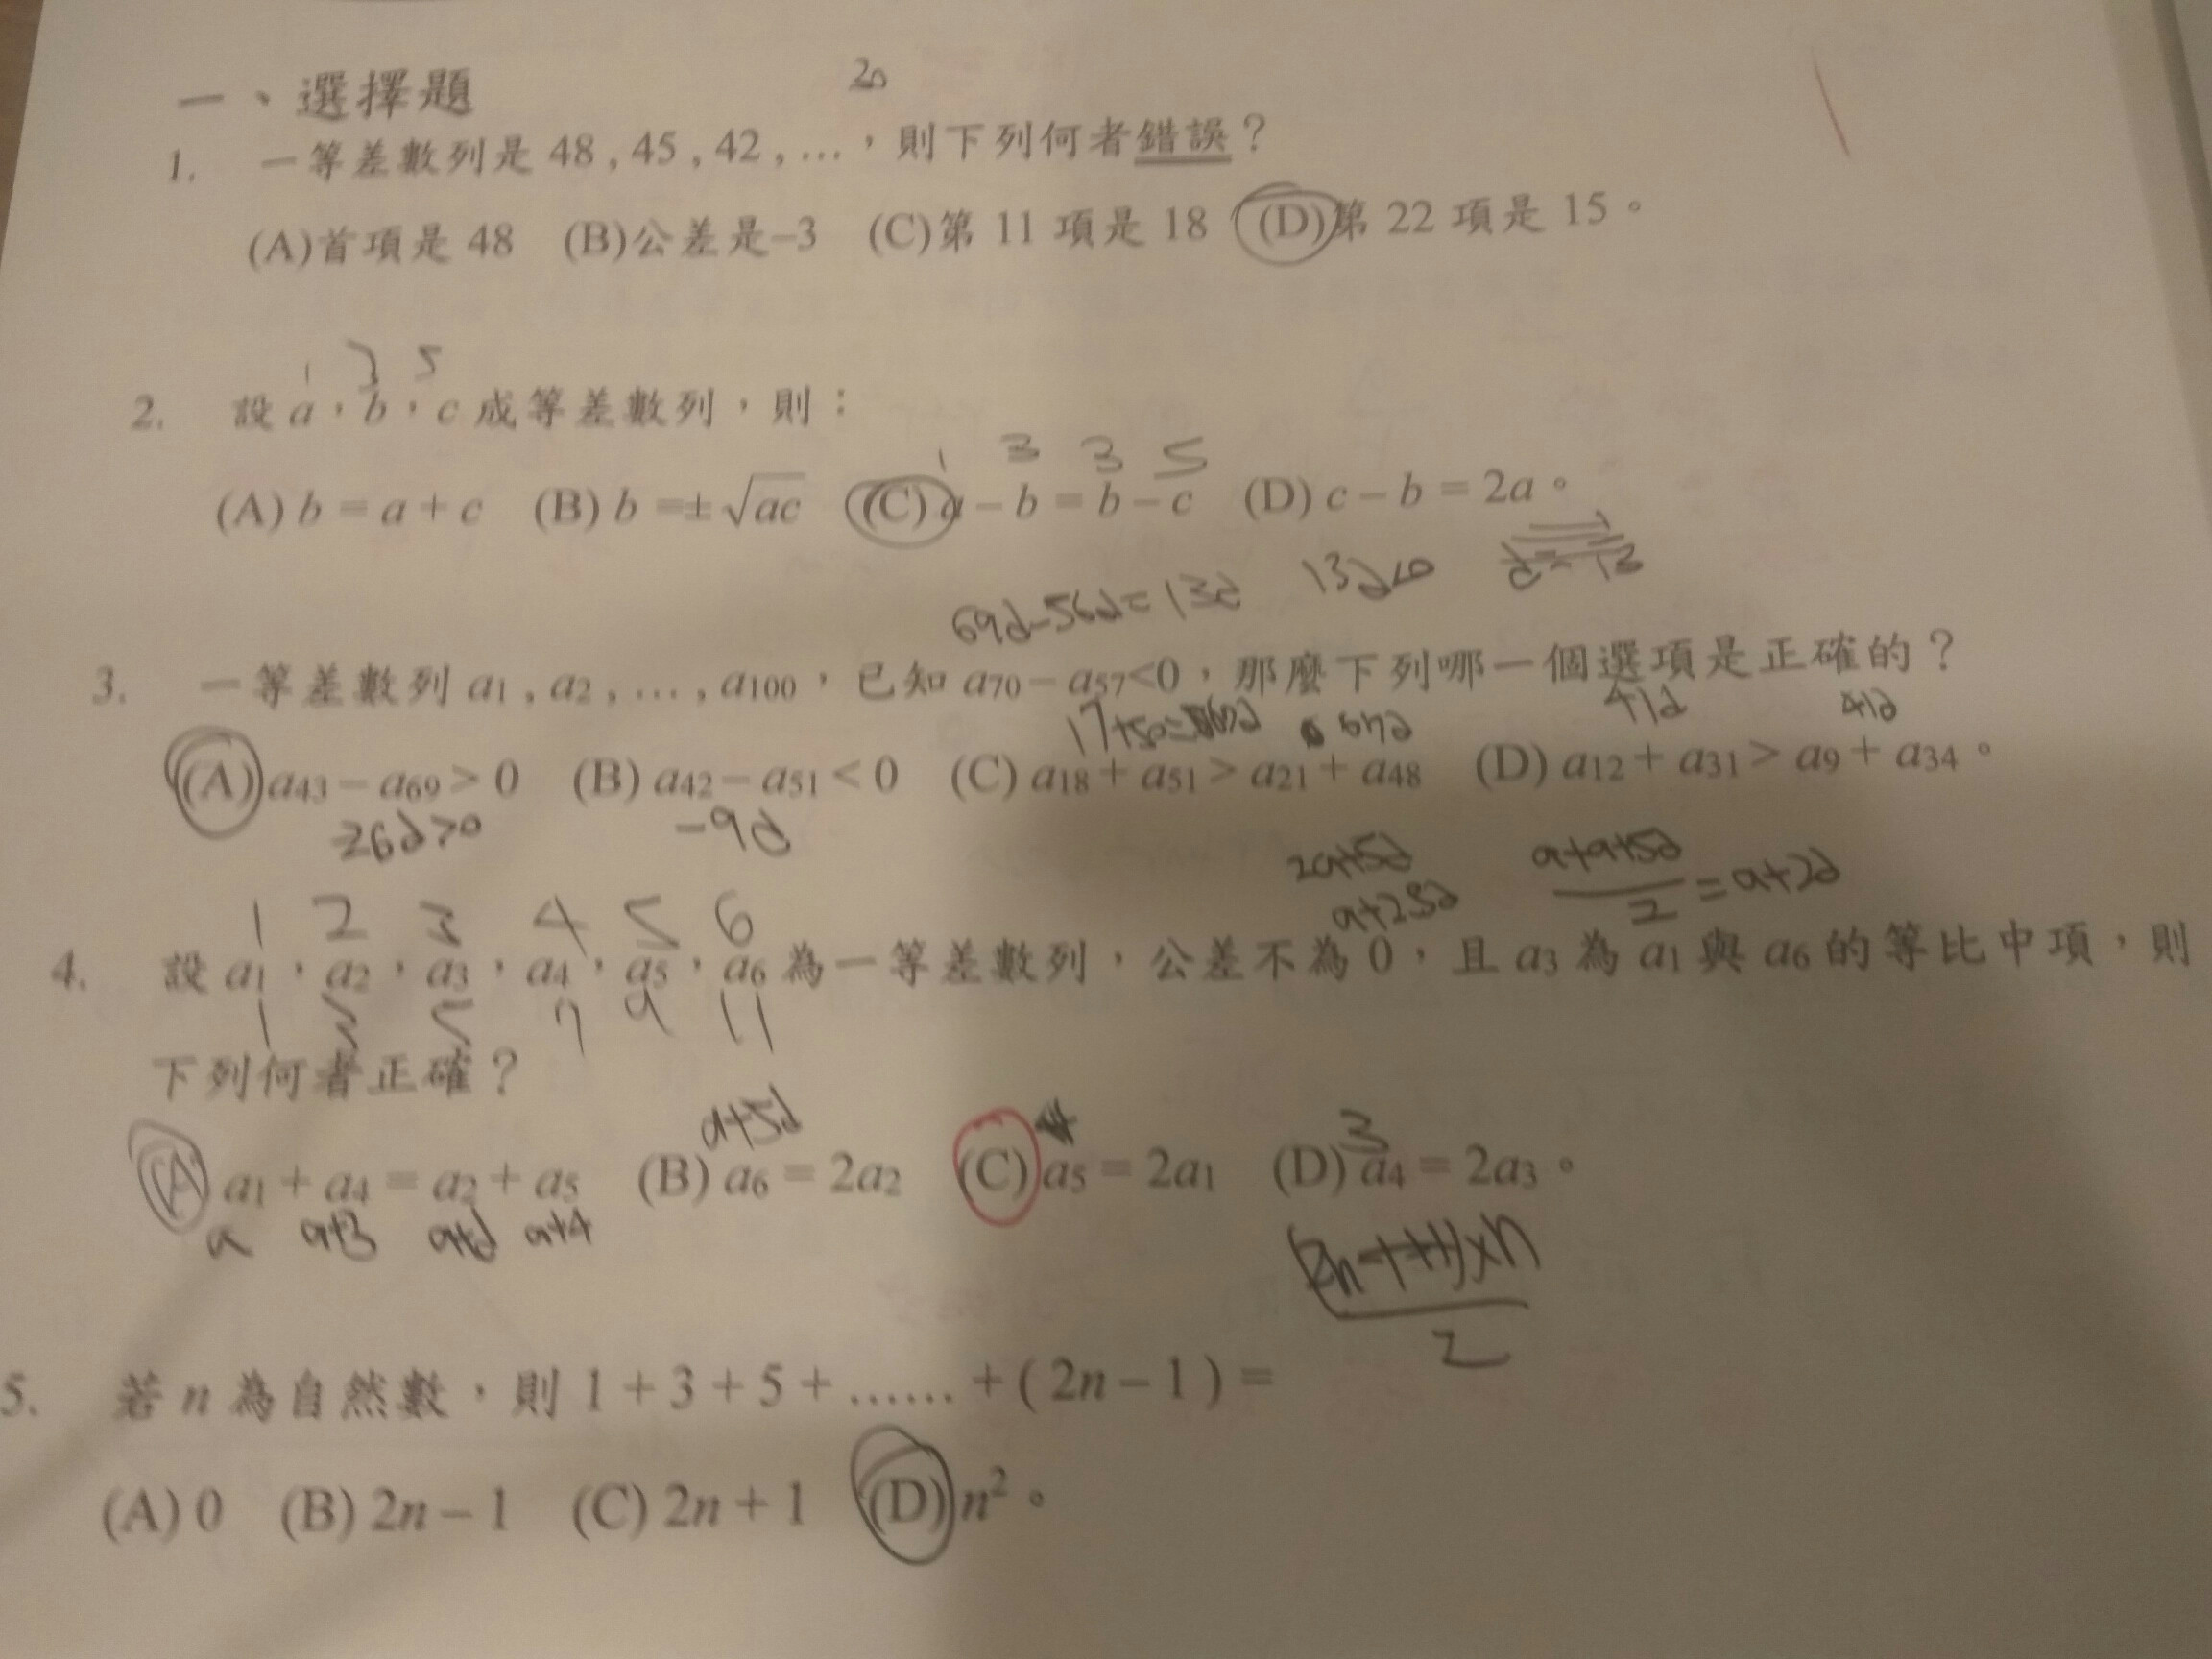 20
一、選擇題
1. 一等差數列是 48 , 45 , 42 , … ,則下列何者錯誤?
(A)首項是 48 (B)公差是–3 (C)第 11 項是 18 (D)第 22 項是 15。
1 3 5
2. 設 a,b,c 成等差數列,則:
1 3 3 5
(A) b = a + c (B) b =± √ac (C) a – b = b – c (D) c – b = 2a。
69d-56d=13d 13d<0
3. 一等差數列 a1 , a2 , … , a100,已知 a70 – a57<0,那麼下列哪一個選項是正確的?
67d 41d 41d
(A) a43 – a69 > 0 (B) a42 – a51 < 0 (C) a18 + a51 > a21 + a48 (D) a12 + a31 > a9 + a34。
-26d>0 -9d
2a+5d a+a+5d/2 = a+2d
a+25d
1 2 3 4 5 6
4. 設 a1,a2,a3,a4,a5,a6 為一等差數列,公差不為 0,且 a3 為 a1 與 a6 的等比中項,則
1 3 5 7 9 11
下列何者正確?
a+5d 3
(A) a1 + a4 = a2 + a5 (B) a6 = 2a2 (C) a5 = 2a1 (D) a4 = 2a3。
a a+3 a+d a+4
(2n-1+1)×n/2
5. 若 n 為自然數,則 1 + 3 + 5 + …… + ( 2n – 1 ) =
(A) 0 (B) 2n – 1 (C) 2n + 1 (D) n²。